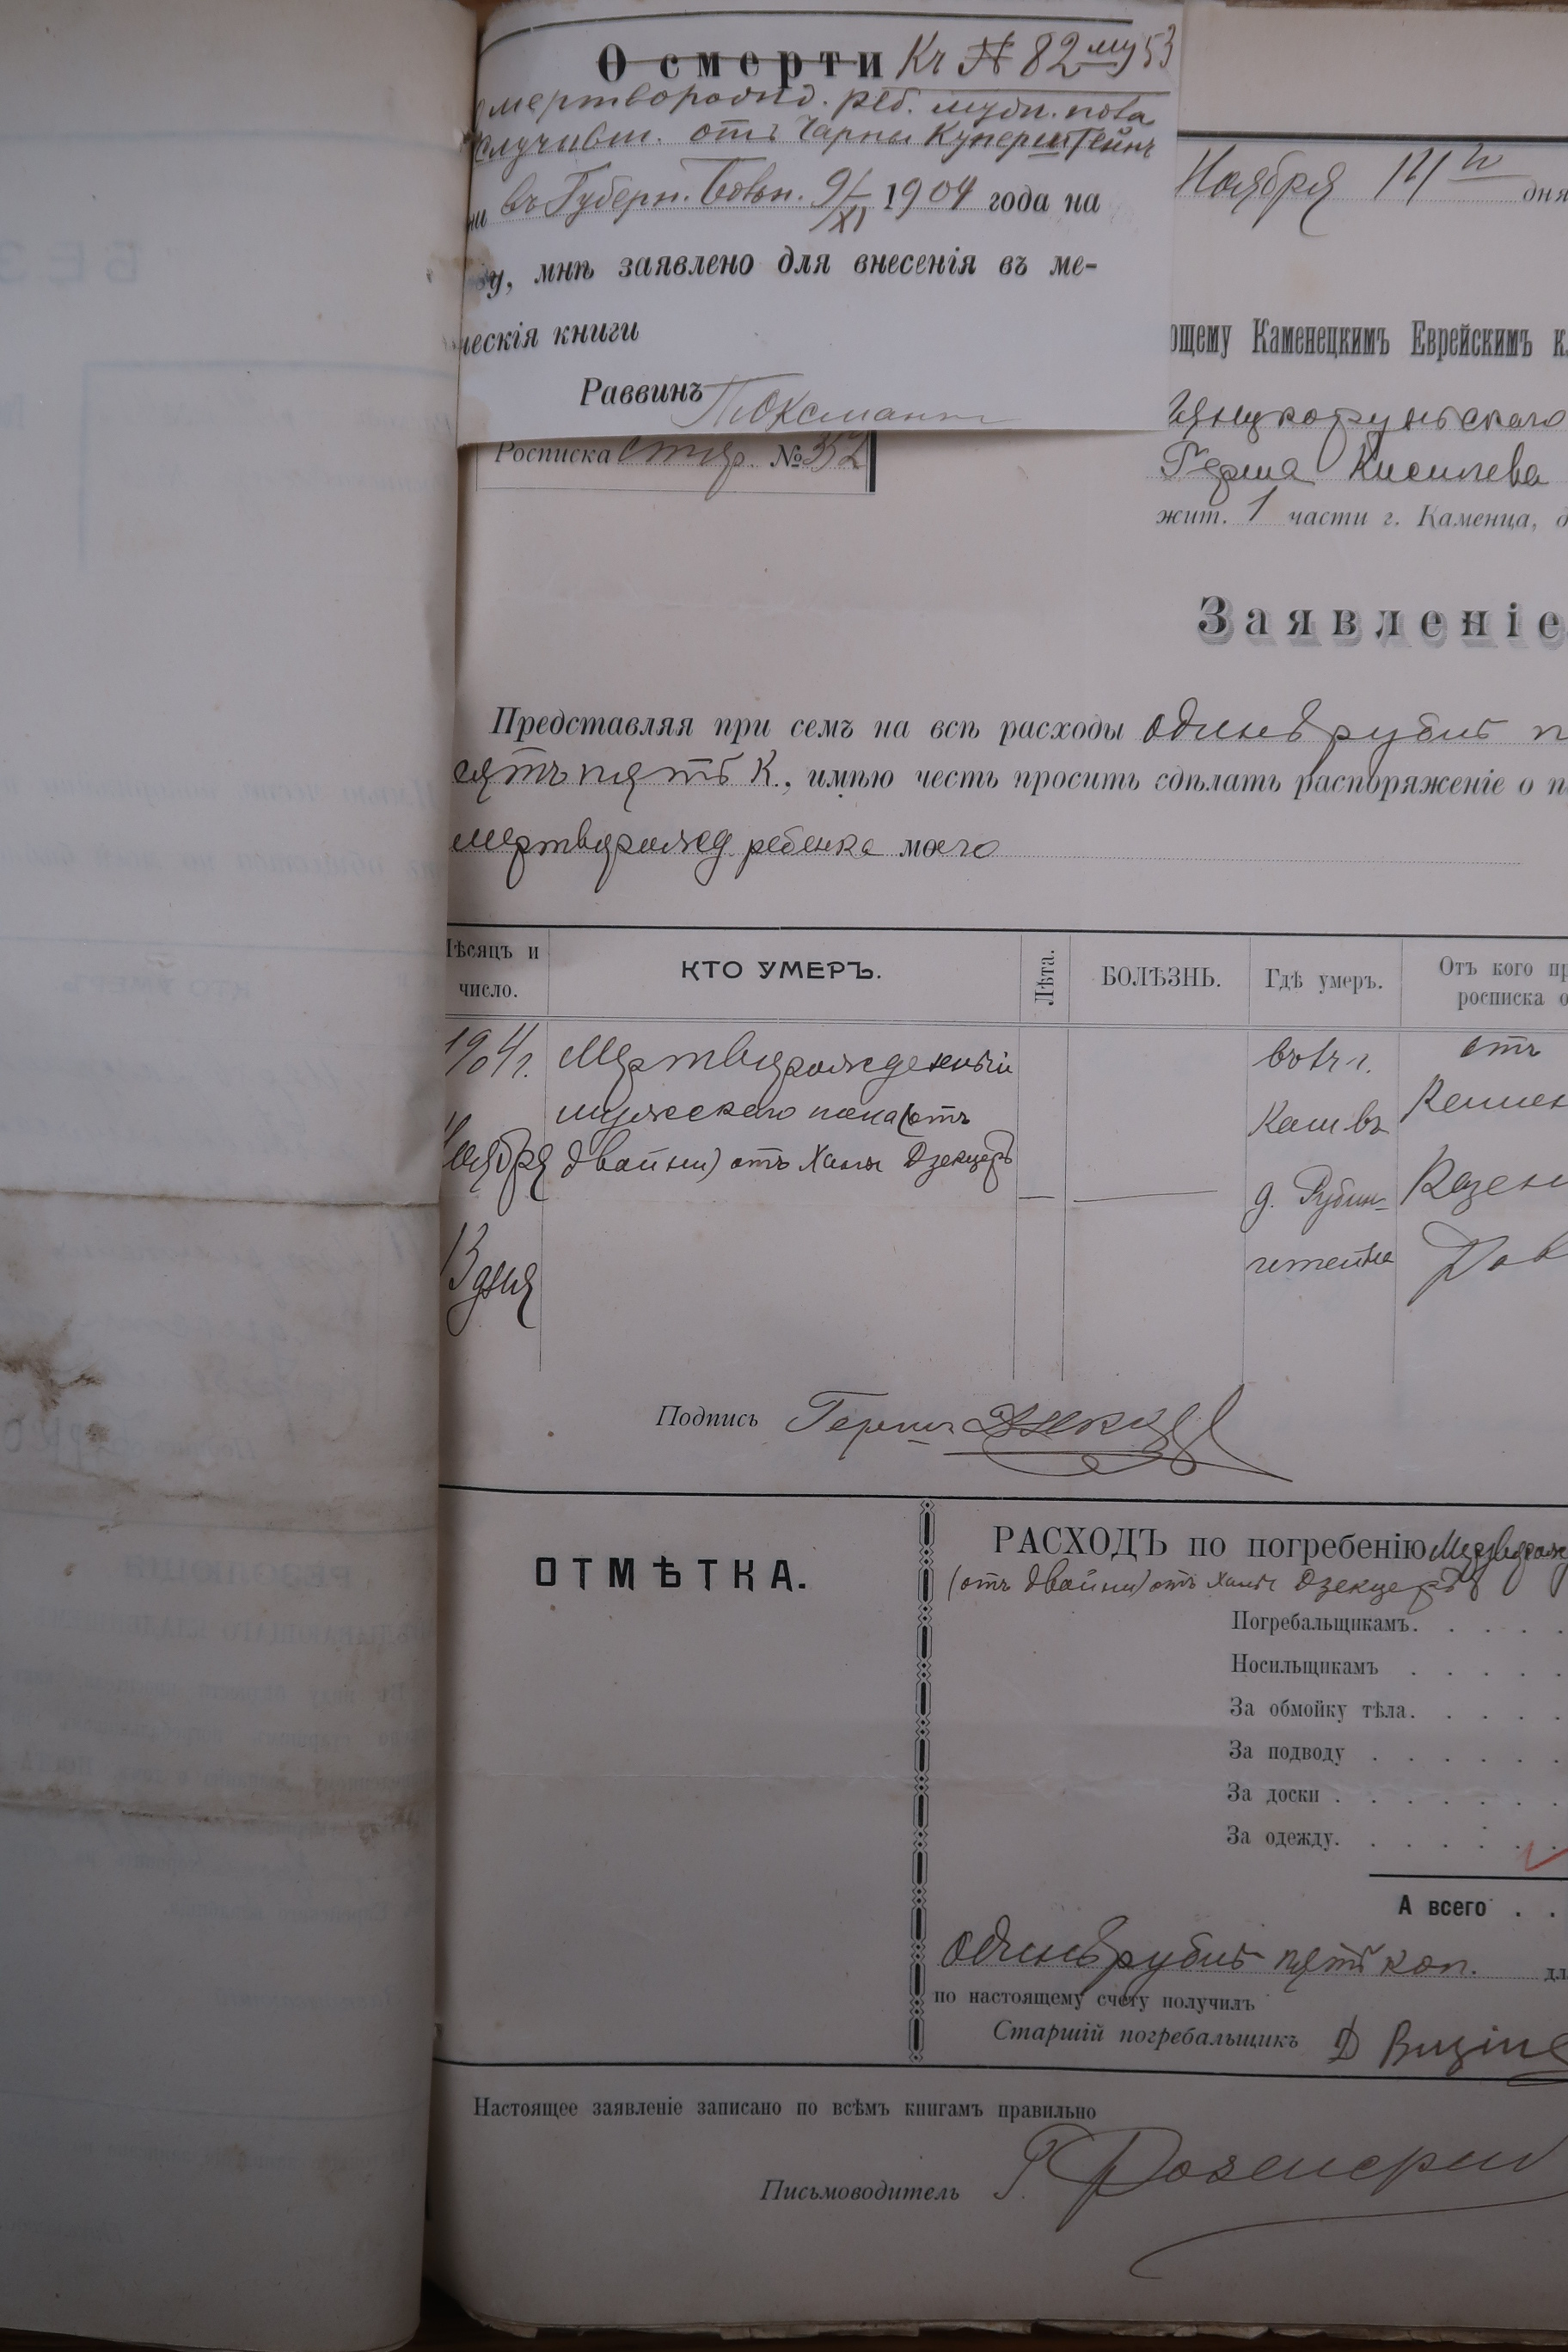 О смерти Къ № 82 му 53
мертворожд. реб. мужск. пола
случивш. отъ Чарны Куперштейнъ
въ Губерн. больн. 9/XI 1904 года на
у, мнѣ заявлено для внесенія въ ме-
ческія книги
Раввинъ
Ноября 14 го дня
Росписка стар. № 352
ющему Каменецкимъ Еврейскимъ к
Герша Киселева
жит. 1 части г. Каменца, д
Заявленіе
Представляя при семъ на всѣ расходы одинъ рубль п
сятъ пять к., имѣю честь просить сдѣлать распоряженіе о п
мертворожд ребенка моего
Мѣсяцъ и число.
КТО УМЕРЪ.
Лѣта.
БОЛѢЗНЬ.
Гдѣ умеръ.
Отъ кого пр
росписка о
1904 г. Ноября 13 дня
Мертворожденный
мужескаго пола (отъ
двойни) отъ Ханы Дзекцеръ
въ г.
Кам въ
д. Рубин-
штейна
отъ
Подпись Гершъ Дзекцеръ
ОТМѢТКА.
РАСХОДЪ по погребенію Мертворожд
(отъ двойни) отъ Ханы Дзекцеръ
Погребальщикамъ.
Носильщикамъ
За обмойку тѣла.
За подводу
За доски
За одежду.
А всего
одинъ рубль пять коп.
по настоящему счету получилъ
Старшій погребальщикъ Д
Настоящее заявленіе записано по всѣмъ книгамъ правильно
Письмоводитель